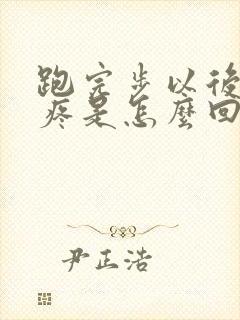 跑完步以後
疼是怎麼回
尹正浩